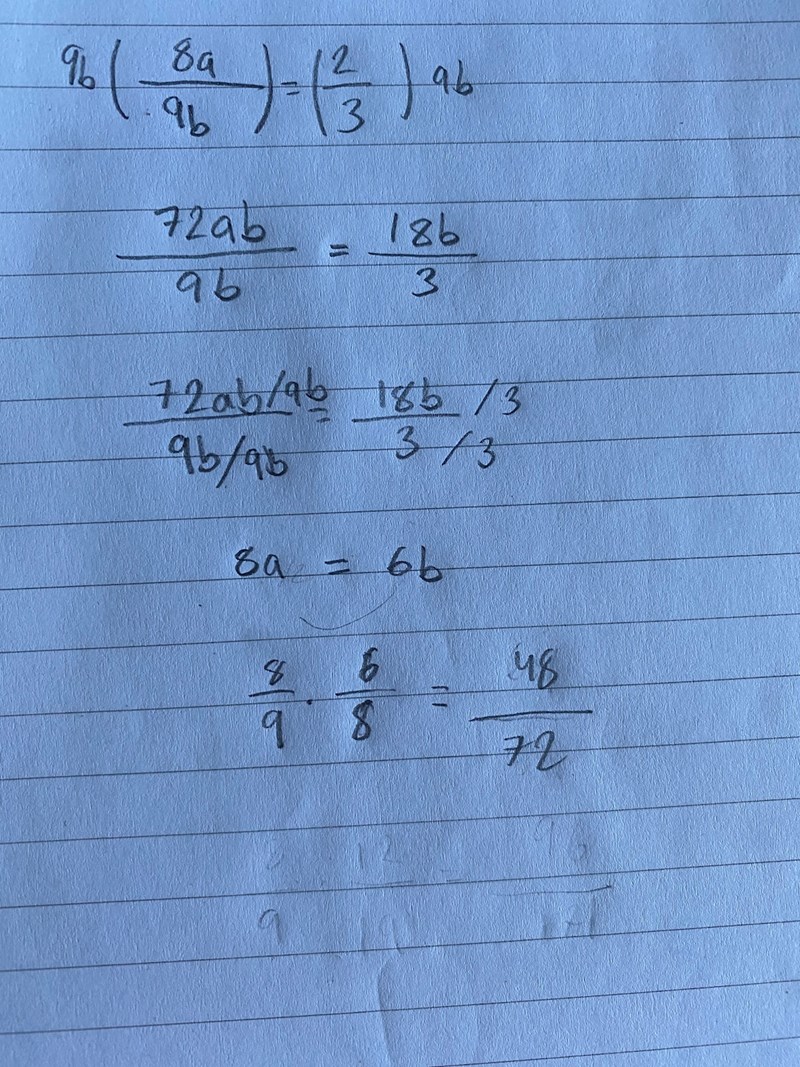 9b ( 8a / 9b ) = ( 2 / 3 ) 9b
72ab / 9b = 18b / 3
72ab/9b / 9b/9b = 18b/3 / 3/3
8a = 6b
8/9 · 6/8 = 48/72